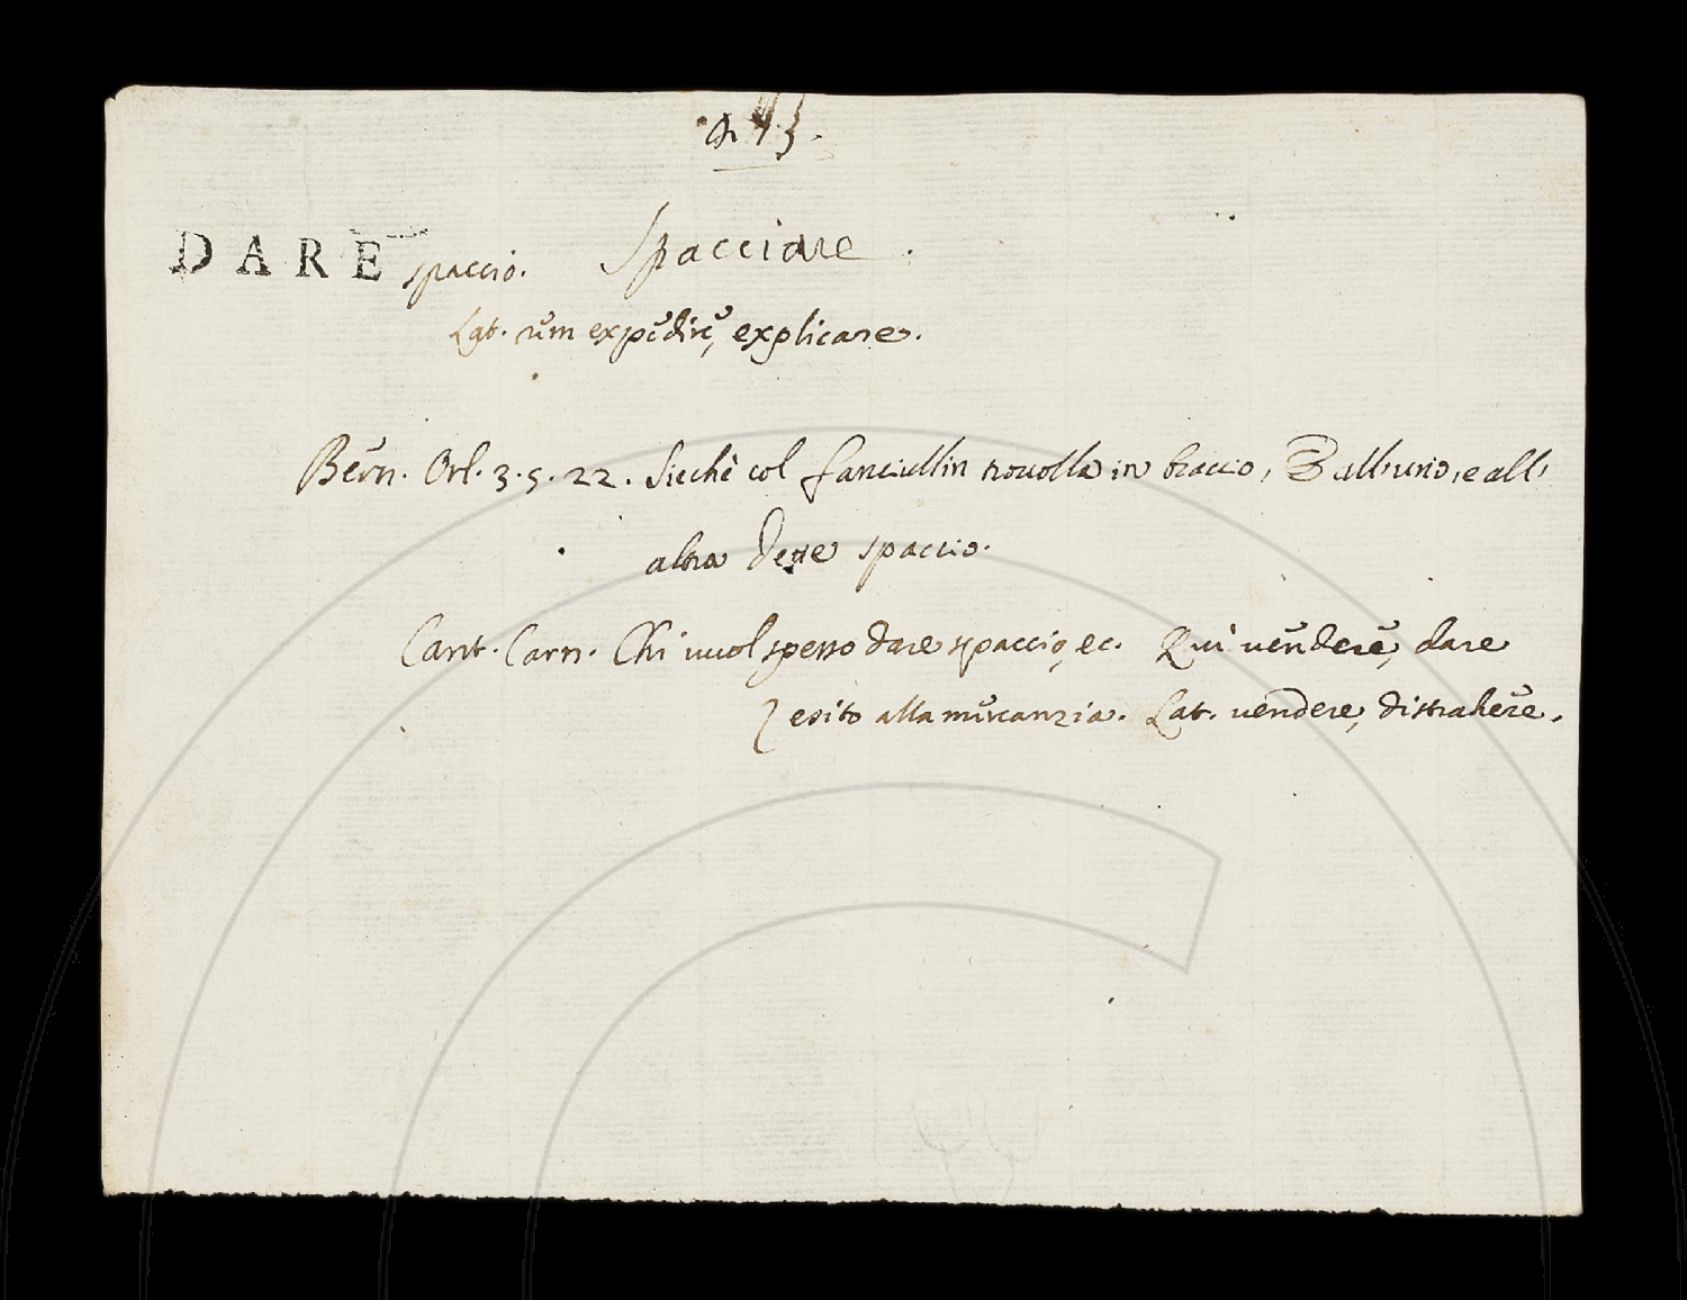 DARE spaccio. Spacciare.
Lat. rem expedire, explicare.
Bern. Orl. 3. 5. 22. Sicchè col fanciullin novella in braccio, E all'uno, e all'
altra dette spaccio.
Cant. Carn. Chi vuol spesso dare spaccio, ec. Qui vendere, dare
esito alla mercanzia. Lat. vendere, distrahere.